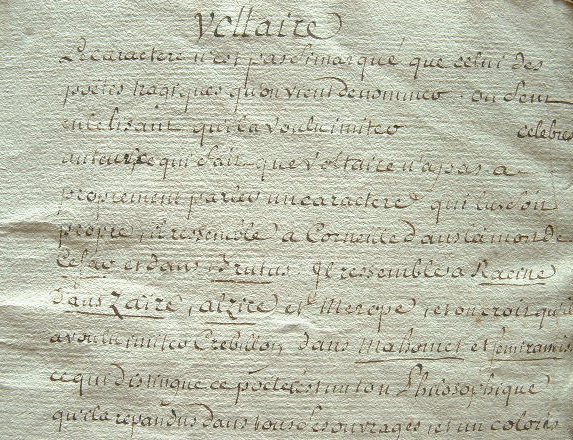 Voltaire
Le caractere n'est pas si marqué que celui des
poetes tragiques qu'on vient de nommer. On sent
en le lisant qu'il a voulu imiter celebres
auteurs ce qui fait que Voltaire n'a pas a
proprement parler un caractere qui lui soit
propre, il ressemble a Corneille dans la mort de
Cesar et dans Brutus. Il ressemble a Racine
dans Zaire, alzire et Merope, et on croit qu'il
a voulu imiter Crebillon dans Mahomet et semiramis
ce qui distingue ce poete c'est un ton Philosophique
qu'il a repandu dans tous ses ouvrages, et un coloris